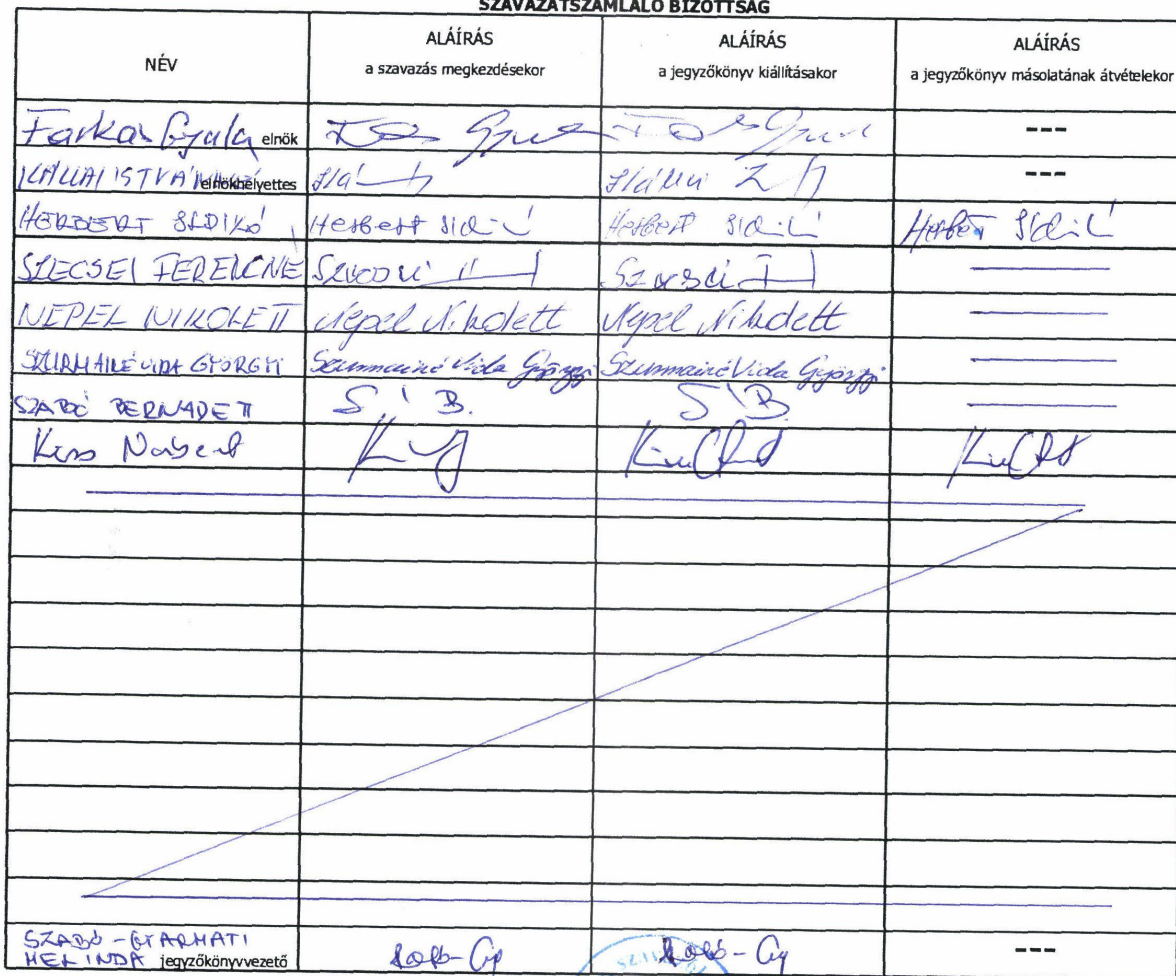 SZAVAZATSZÁMLÁLÓ BIZOTTSÁG
NÉV
ALÁÍRÁS
a szavazás megkezdésekor
ALÁÍRÁS
a jegyzőkönyv kiállításakor
ALÁÍRÁS
a jegyzőkönyv másolatának átvételekor
Farkas Gyula elnök
---
elnökhelyettes
---
HERBERT ILDIKÓ Herbert Ildikó Herbert Ildikó Herbert Ildikó
SZECSEI FERENCNÉ
NEPEL NIKOLETT Nepel Nikolett Nepel Nikolett
SZURMAINÉ VIDA GYÖRGYI Szurmainé Vida Györgyi Szurmainé Vida Györgyi
SZABÓ BERNADETT S B. S B.
Kiss Norbert
SZABÓ-GYARMATI
MELINDA jegyzőkönyvvezető
---